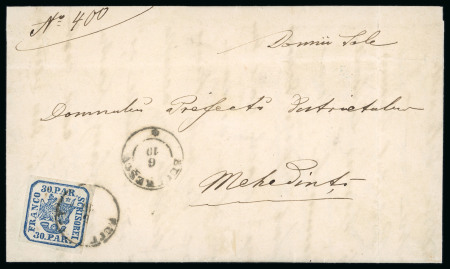 No 400
Domnii Sale
Domnului Prefectu Districtului
Mehedinți
6
19
30.PAR
FRANCO
SCRISOREI
30.PAR